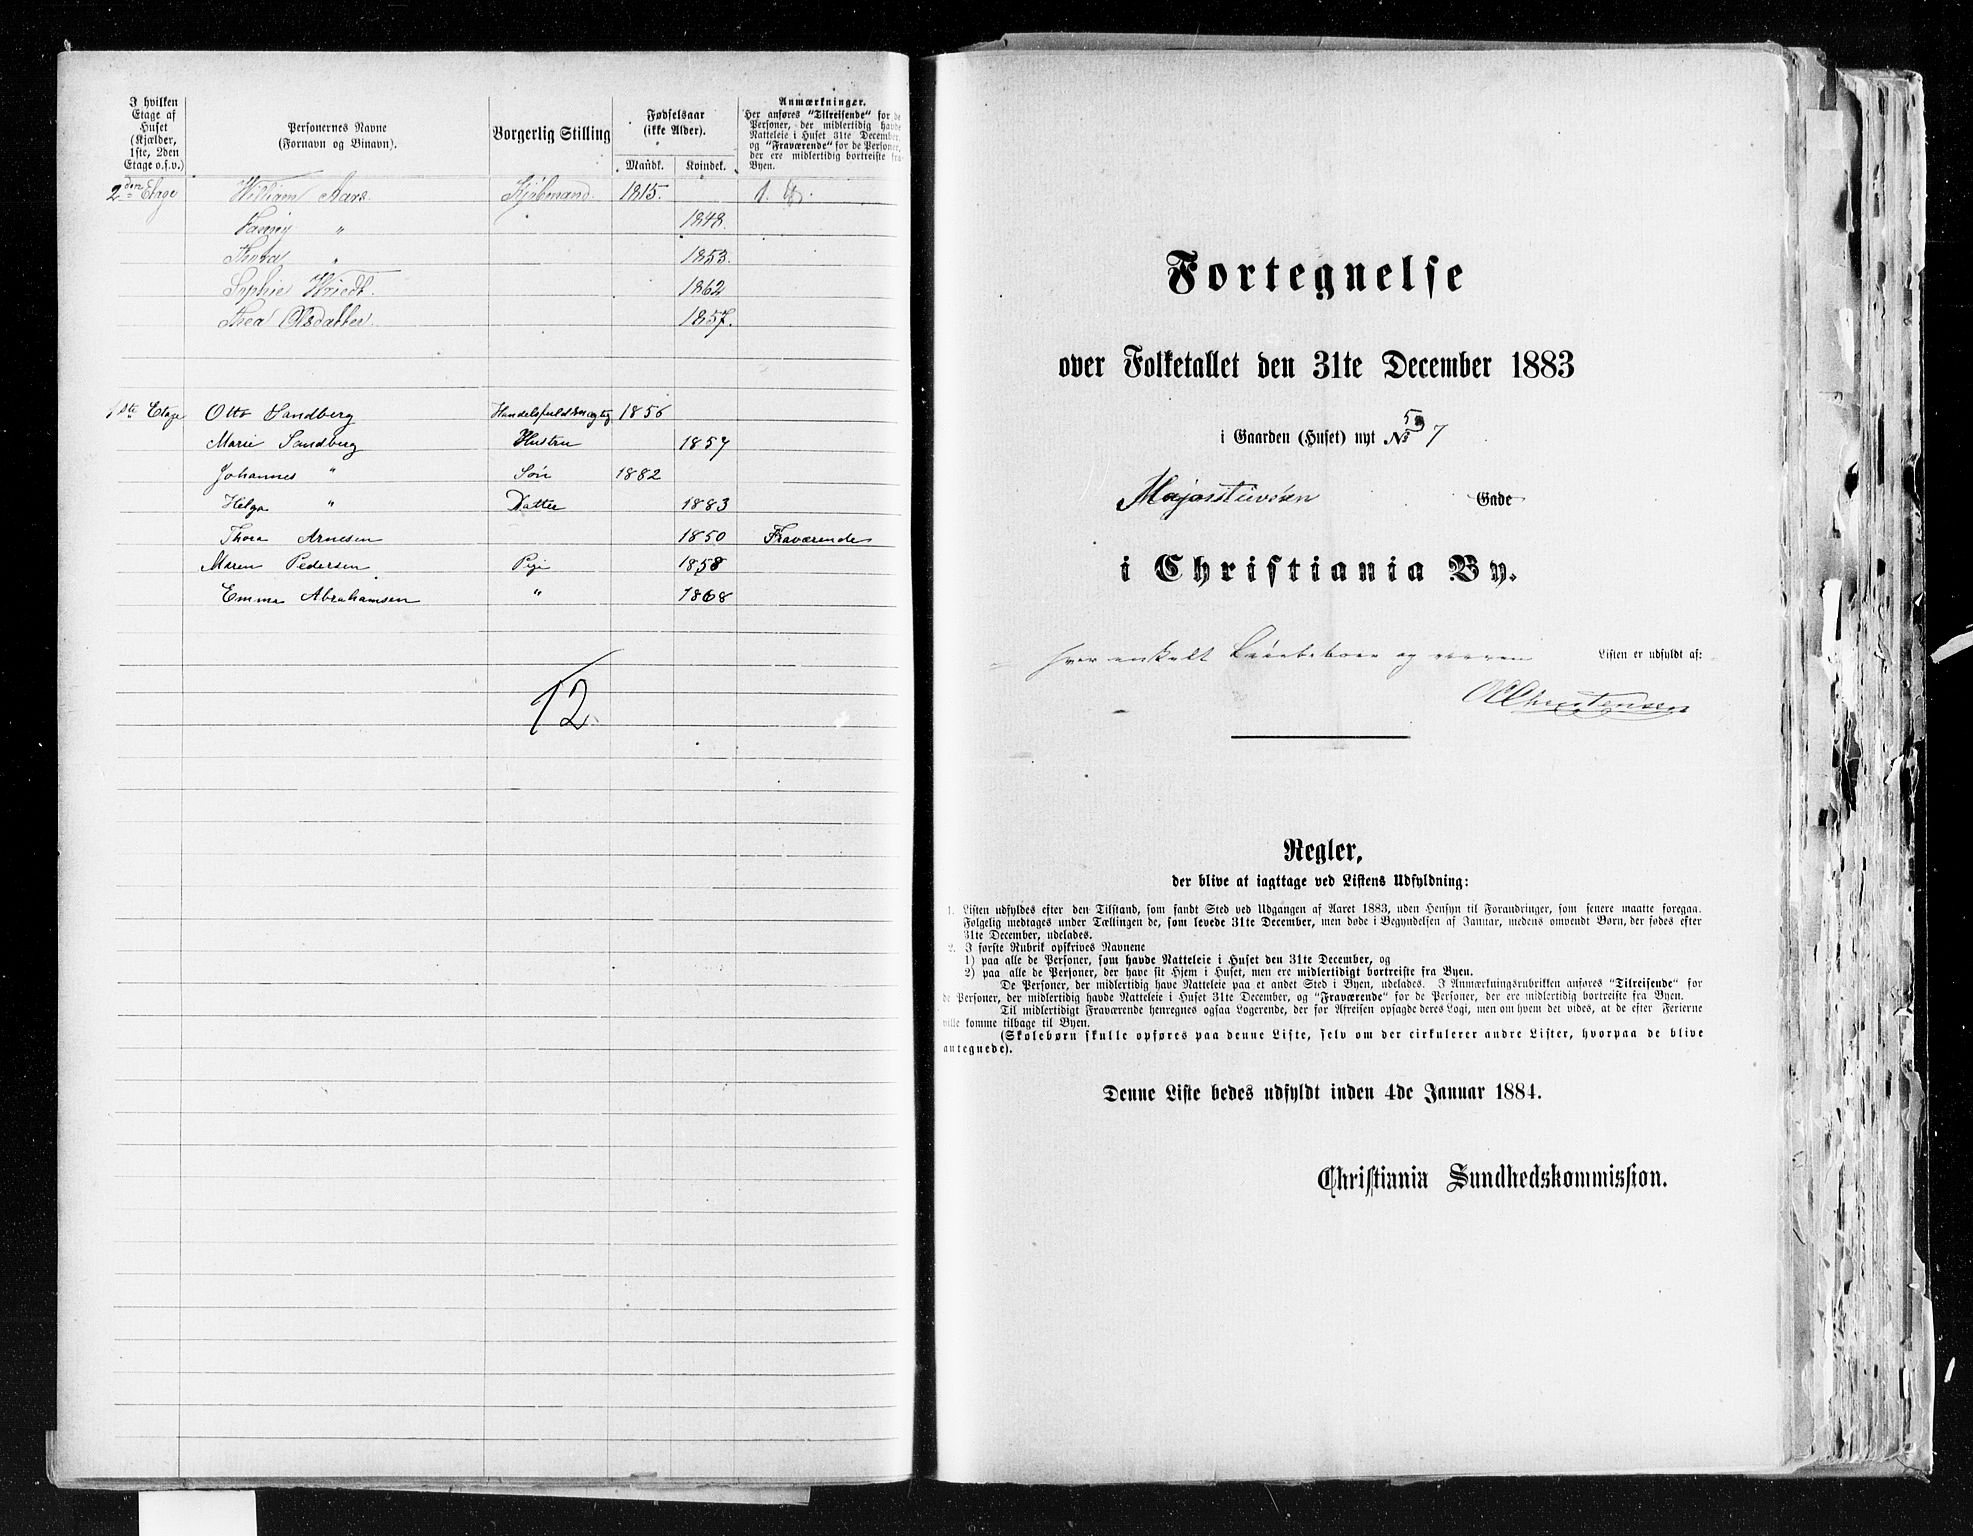 I hvilken
Etage af
Huset
(Kjælder,
1ste, 2den
Etage o.s.v.)
Personernes Navne
(Fornavn og Binavn).
Borgerlig Stilling
Fødselsaar
(ikke Alder).
Mandk. Kvindek.
Anmærkninger.
Her anføres "Tilreisende" for de
Personer, der midlertidig havde
Natteleie i Huset 31te December,
og "Fraværende" for de Personer,
der ere midlertidig bortreiste fra
Byen.
2den Etage William Aars. Kjøbmand. 1815.
Fanny " 1848.
Thora " 1853.
Sophie Wriedt. 1862
Thea Olsdatter. 1857.
1ste Etage Otto Sandberg Handelsfuldmægtig 1856
Marie Sandberg Hustru 1857
Johannes " Søn 1882
Helga " Datter 1883
Thora Arnesen 1850 Fraværende
Maren Pedersen Pige 1858
Emma Abrahamsen " 1868
12.
Fortegnelse
over Folketallet den 31te December 1883
i Gaarden (Huset) nyt No 7
Majorstuveien Gade
i Christiania By.
hver enkelt og
Listen er udfyldt af:
Christensen
Regler,
der blive at iagttage ved Listens Udfyldning:
1. Listen udfyldes efter den Tilstand, som fandt Sted ved Udgangen af Aaret 1883, uden Hensyn til Forandringer, som senere maatte foregaa.
Følgelig medtages under Tællingen de, som levede 31te December, men døde i Begyndelsen af Januar, medens omvendt Børn, der fødes efter
31te December, udelades.
2. I første Rubrik opskrives Navnene
1) paa alle de Personer, som havde Natteleie i Huset den 31te December, og
2) paa alle de Personer, der have sit Hjem i Huset, men ere midlertidigt bortreiste fra Byen.
De Personer, der midlertidig have Natteleie paa et andet Sted i Byen, udelades. I Anmærkningsrubrikken anføres "Tilreisende" for
de Personer, der midlertidig havde Natteleie i Huset 31te December, og "Fraværende" for de Personer, der ere midlertidig bortreiste fra Byen.
Til midlertidigt Fraværende henregnes ogsaa Logerende, der før Afreisen opsagde deres Logi, men om hvem det vides, at de efter Ferierne
ville komme tilbage til Byen.
(Skolebørn skulle opføres paa denne Liste, selv om der cirkulerer andre Lister, hvorpaa de blive
antegnede).
Denne Liste bedes udfyldt inden 4de Januar 1884.
Christiania Sundhedskommission.